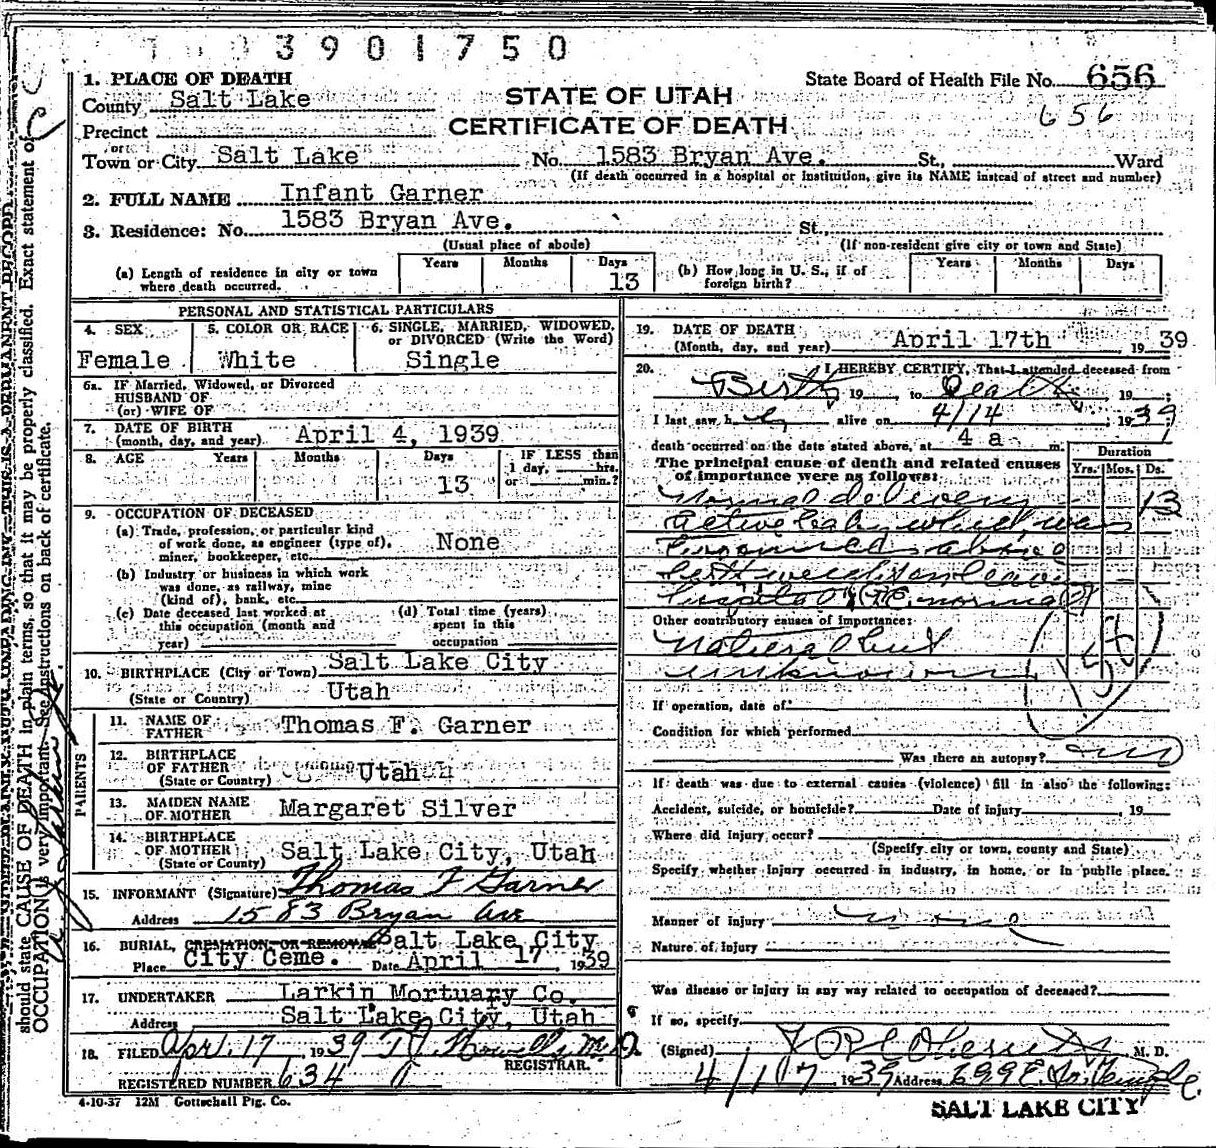 3901750
1. PLACE OF DEATH
State Board of Health File No. 656
County Salt Lake
STATE OF UTAH
656
Precinct
CERTIFICATE OF DEATH
or
Town or City Salt Lake No. 1583 Bryan Ave. St., Ward
(If death occurred in a hospital or institution, give its NAME instead of street and number)
2. FULL NAME Infant Garner
3. Residence: No. 1583 Bryan Ave. St.
(Usual place of abode) (If non-resident give city or town and State)
(a) Length of residence in city or town where death occurred. Years Months Days 13
(b) How long in U. S., if of foreign birth? Years Months Days
PERSONAL AND STATISTICAL PARTICULARS
4. SEX Female
5. COLOR OR RACE White
6. SINGLE, MARRIED, WIDOWED, or DIVORCED (Write the Word) Single
6a. IF Married, Widowed, or Divorced
HUSBAND OF
(or) WIFE OF
7. DATE OF BIRTH
(month, day, and year) April 4, 1939
8. AGE Years Months Days 13
IF LESS than 1 day, hrs. or min.?
9. OCCUPATION OF DECEASED
(a) Trade, profession, or particular kind
of work done, as engineer (type of),
miner, bookkeeper, etc. None
(b) Industry or business in which work
was done, as railway, mine
(kind of), bank, etc.
(c) Date deceased last worked at
this occupation (month and
year)
(d) Total time (years)
spent in this
occupation
10. BIRTHPLACE (City or Town) Salt Lake City
(State or Country) Utah
PARENTS
11. NAME OF FATHER Thomas F. Garner
12. BIRTHPLACE OF FATHER
(State or Country) Utah
13. MAIDEN NAME OF MOTHER Margaret Silver
14. BIRTHPLACE OF MOTHER
(State or Country) Salt Lake City, Utah
15. INFORMANT (Signature) Thomas F Garner
Address 1583 Bryan Ave
16. BURIAL, CREMATION OR REMOVAL Salt Lake City
Place City Ceme. Date April 17 1939
17. UNDERTAKER Larkin Mortuary Co.
Address Salt Lake City, Utah
18. FILED Apr. 17 1939 Howells M.D.
REGISTRAR.
REGISTERED NUMBER 634
4-10-37 12M Gottschall Ptg. Co.
19. DATE OF DEATH
(Month, day, and year) April 17th 1939
20. I HEREBY CERTIFY, That I attended deceased from
Birth 19 , to Death , 19 ;
I last saw h alive on 4/14 , 1939
death occurred on the date stated above, at 4 a m.
The principal cause of death and related causes
of importance were as follows:
Duration
Yrs. Mos. Ds.
Normal delivery 13
Active baby which was
above
birth weight on leaving
hospital normal
Other contributory causes of importance:
Natural but
unknown
If operation, date of
Condition for which performed
Was there an autopsy?
If death was due to external causes (violence) fill in also the following:
Accident, suicide, or homicide? Date of injury , 19
Where did injury occur?
(Specify city or town, county and State)
Specify whether injury occurred in industry, in home, or in public place.
Manner of injury none
Nature of injury
Was disease or injury in any way related to occupation of deceased?
If so, specify
(Signed) M. D.
4/17 1939 Address 699 E. So. Temple
SALT LAKE CITY
should state CAUSE OF DEATH in plain terms, so that it may be properly classified. Exact statement of
OCCUPATION is very important. See instructions on back of certificate.